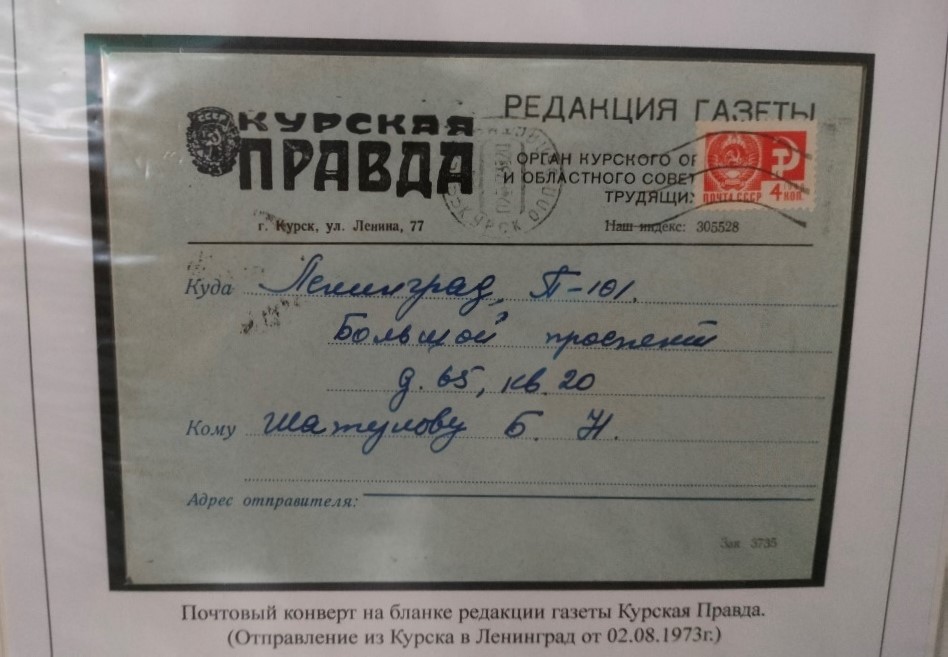 РЕДАКЦИЯ ГАЗЕТЫ
СССР
КУРСКАЯ
ПРАВДА
ОРГАН КУРСКОГО ОБ
И ОБЛАСТНОГО СОВЕТ
ТРУДЯЩИХ
ПОЧТА СССР
4 КОП.
КУРСК
г. Курск, ул. Ленина, 77
Наш индекс: 305528
Куда Ленинград, П-101.
Большой проспект
д. 65, кв. 20
Кому Шатулову Б. Н.
Адрес отправителя:
Зак 3735
Почтовый конверт на бланке редакции газеты Курская Правда.
(Отправление из Курска в Ленинград от 02.08.1973г.)